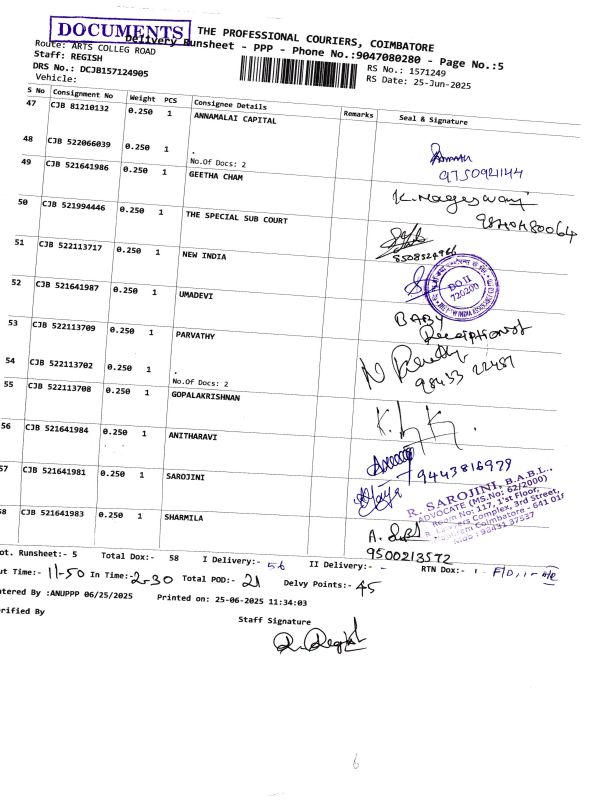 DOCUMENTS
THE PROFESSIONAL COURIERS, COIMBATORE
Delivery Runsheet - PPP - Phone No.:9047080280 - Page No.:5
Route: ARTS COLLEG ROAD
Staff: REGISH
DRS No.: DCJB157124905
Vehicle:
RS No.: 1571249
RS Date: 25-Jun-2025
S No Consignment No Weight PCS Consignee Details Remarks Seal & Signature
47 CJB 81210132 0.250 1 ANNAMALAI CAPITAL
48 CJB 522066039 0.250 1 .
No.Of Docs: 2
9750921144
49 CJB 521641986 0.250 1 GEETHA CHAM
K. Nageswari
50 CJB 521994446 0.250 1 THE SPECIAL SUB COURT
51 CJB 522113717 0.250 1 NEW INDIA
D.O.II
720200
52 CJB 521641987 0.250 1 UMADEVI
BABY
Receiptionist
53 CJB 522113709 0.250 1 PARVATHY
54 CJB 522113702 0.250 1 .
No.Of Docs: 2
98433 22487
55 CJB 522113708 0.250 1 GOPALAKRISHNAN
56 CJB 521641984 0.250 1 ANITHARAVI
9443816979
57 CJB 521641981 0.250 1 SAROJINI
R. SAROJINI, B.A.B.L.,
ADVOCATE (MS.No: 62/2000)
Room No: 117, 1st Floor,
Lawyers Complex, 3rd Street,
Coimbatore - 641 018
Mob: 98431 37537
58 CJB 521641983 0.250 1 SHARMILA
9500213572
ot. Runsheet:- 5 Total Dox:- 58 I Delivery:- 56 II Delivery:- - RTN Dox:- 1
ut Time:- 11-50 In Time:- 2-30 Total POD:- 21 Delvy Points:- 45
ntered By :ANUPPP 06/25/2025 Printed on: 25-06-2025 11:34:03
erified By
Staff Signature
R. Regish
6